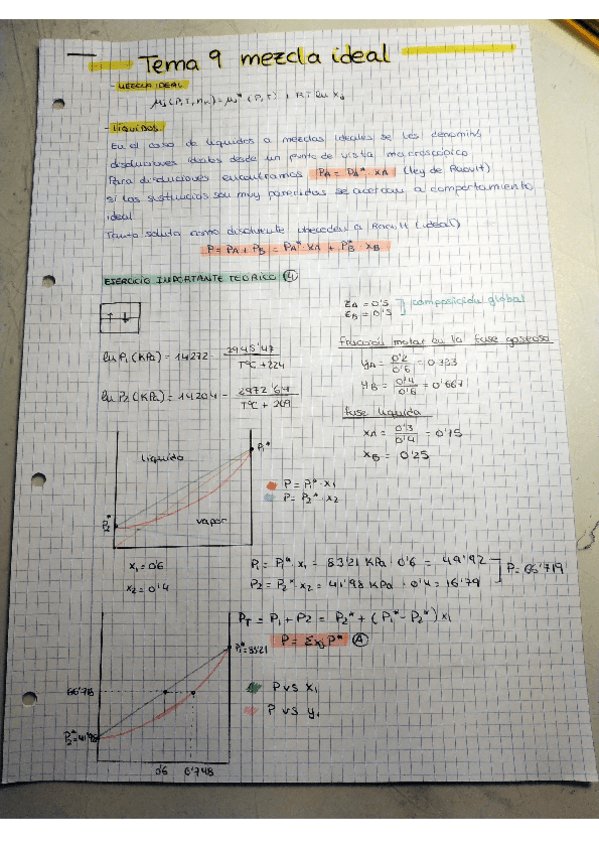 Tema 9 mezcla ideal
- MEZCLA IDEAL
μi (P,T,nk) = μi* (P,T) + RT ln xi
- LÍQUIDOS.
En el caso de líquidos a mezclas ideales se les denomina
disoluciones ideales desde un punto de vista macroscópico
Para disoluciones encontramos PA = PA* xA (ley de Raoult)
si las sustancias son muy parecidas se acercan a comportamiento
ideal
Tanto soluto como disolvente obedecen a Raoult (ideal)
P = PA + PB = PA* · xA + PB* · xB
EJERCICIO IMPORTANTE TEÓRICO 4
ZA = 0'5
ZB = 0'5
composición global
ln P1 (KPa) = 14'272 - 2945'47 / TºC + 224
ln P2 (KPa) = 14'204 - 2972'64 / TºC + 209
Fracción molar en la fase gaseosa
yA = 0'2 / 0'6 = 0'333
yB = 0'4 / 0'6 = 0'667
fase líquida
xA = 0'3 / 0'4 = 0'75
xB = 0'25
líquido
P1*
P2*
vapor
P = P1* · x1
P = P2* · x2
x1 = 0'6
x2 = 0'4
P1 = P1* · x1 = 83'21 KPa · 0'6 = 49'92
P2 = P2* · x2 = 41'98 KPa · 0'4 = 16'79
P = 66'719
PT = P1 + P2 = P2* + (P1* - P2*) x1
P = Σxj P* A
P1* = 83'21
66'78
P2* = 41'98
0'6
0'748
P vs x1
P vs y1